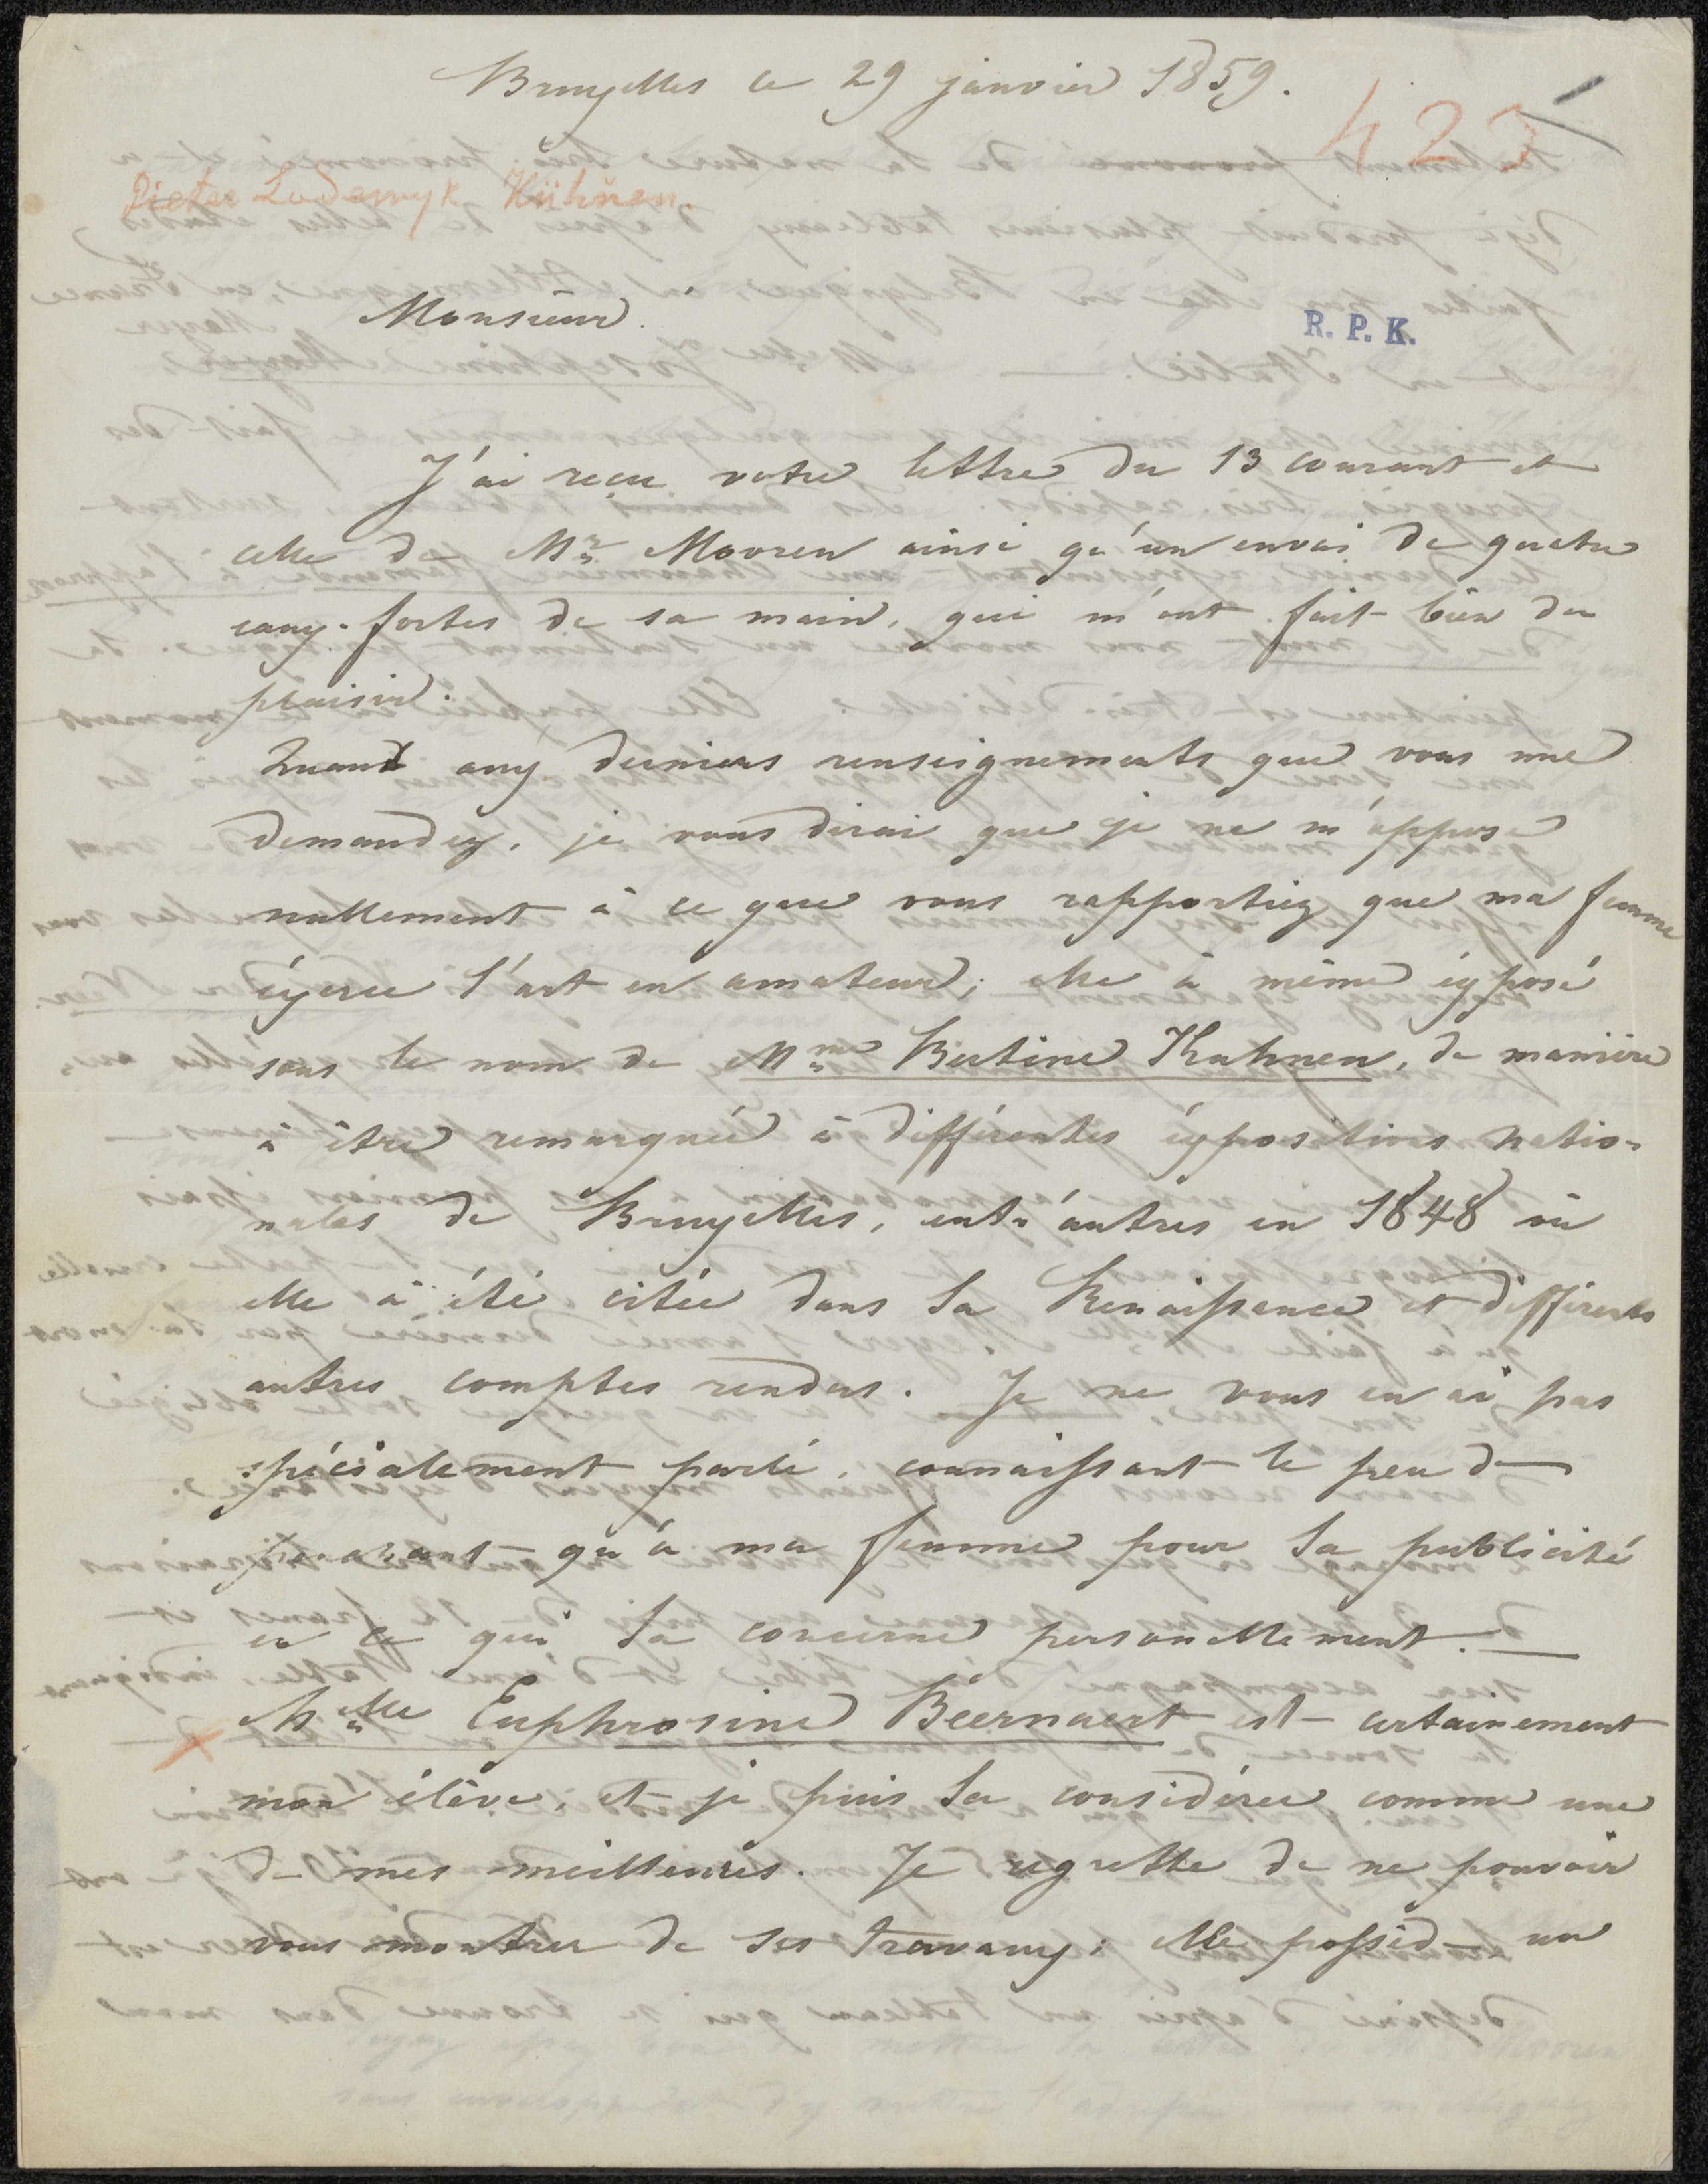 Bruxelles ce 29 janvier 1859.
423
Pieter Lodewyk Kühnen.
Monsieur.
R. P. K.
J'ai reçu votre lettre du 13 courant et
celle de Mr Movren ainsi qu'un envoi de quatre
eaux-fortes de sa main, qui m'ont fait bien du
plaisir.
Quant aux derniers renseignements que vous me
demandez, je vous dirai que je ne m'oppose
nullement à ce que vous rapportiez que ma femme
éxerce l'art en amateur; elle à même éxposé
sous le nom de Mme Bertine Kuhnen, de manière
à être remarquée à différentes éxpositions natio-
nales de Bruxelles, entr'autres en 1848 où
elle à été citée dans la Renaissance et différents
autres comptes rendus. Je ne vous en ai pas
spécialement parlé, connaissant le peu de
penchant qu'à ma femme pour la publicité
en ce qui la concerne personellement. —
Mlle Euphrosine Beernaert est certainement
mon élève, et je puis la considérer comme une
de mes meilleures. Je regrette de ne pouvoir
vous montrer de ses travaux; elle possède un